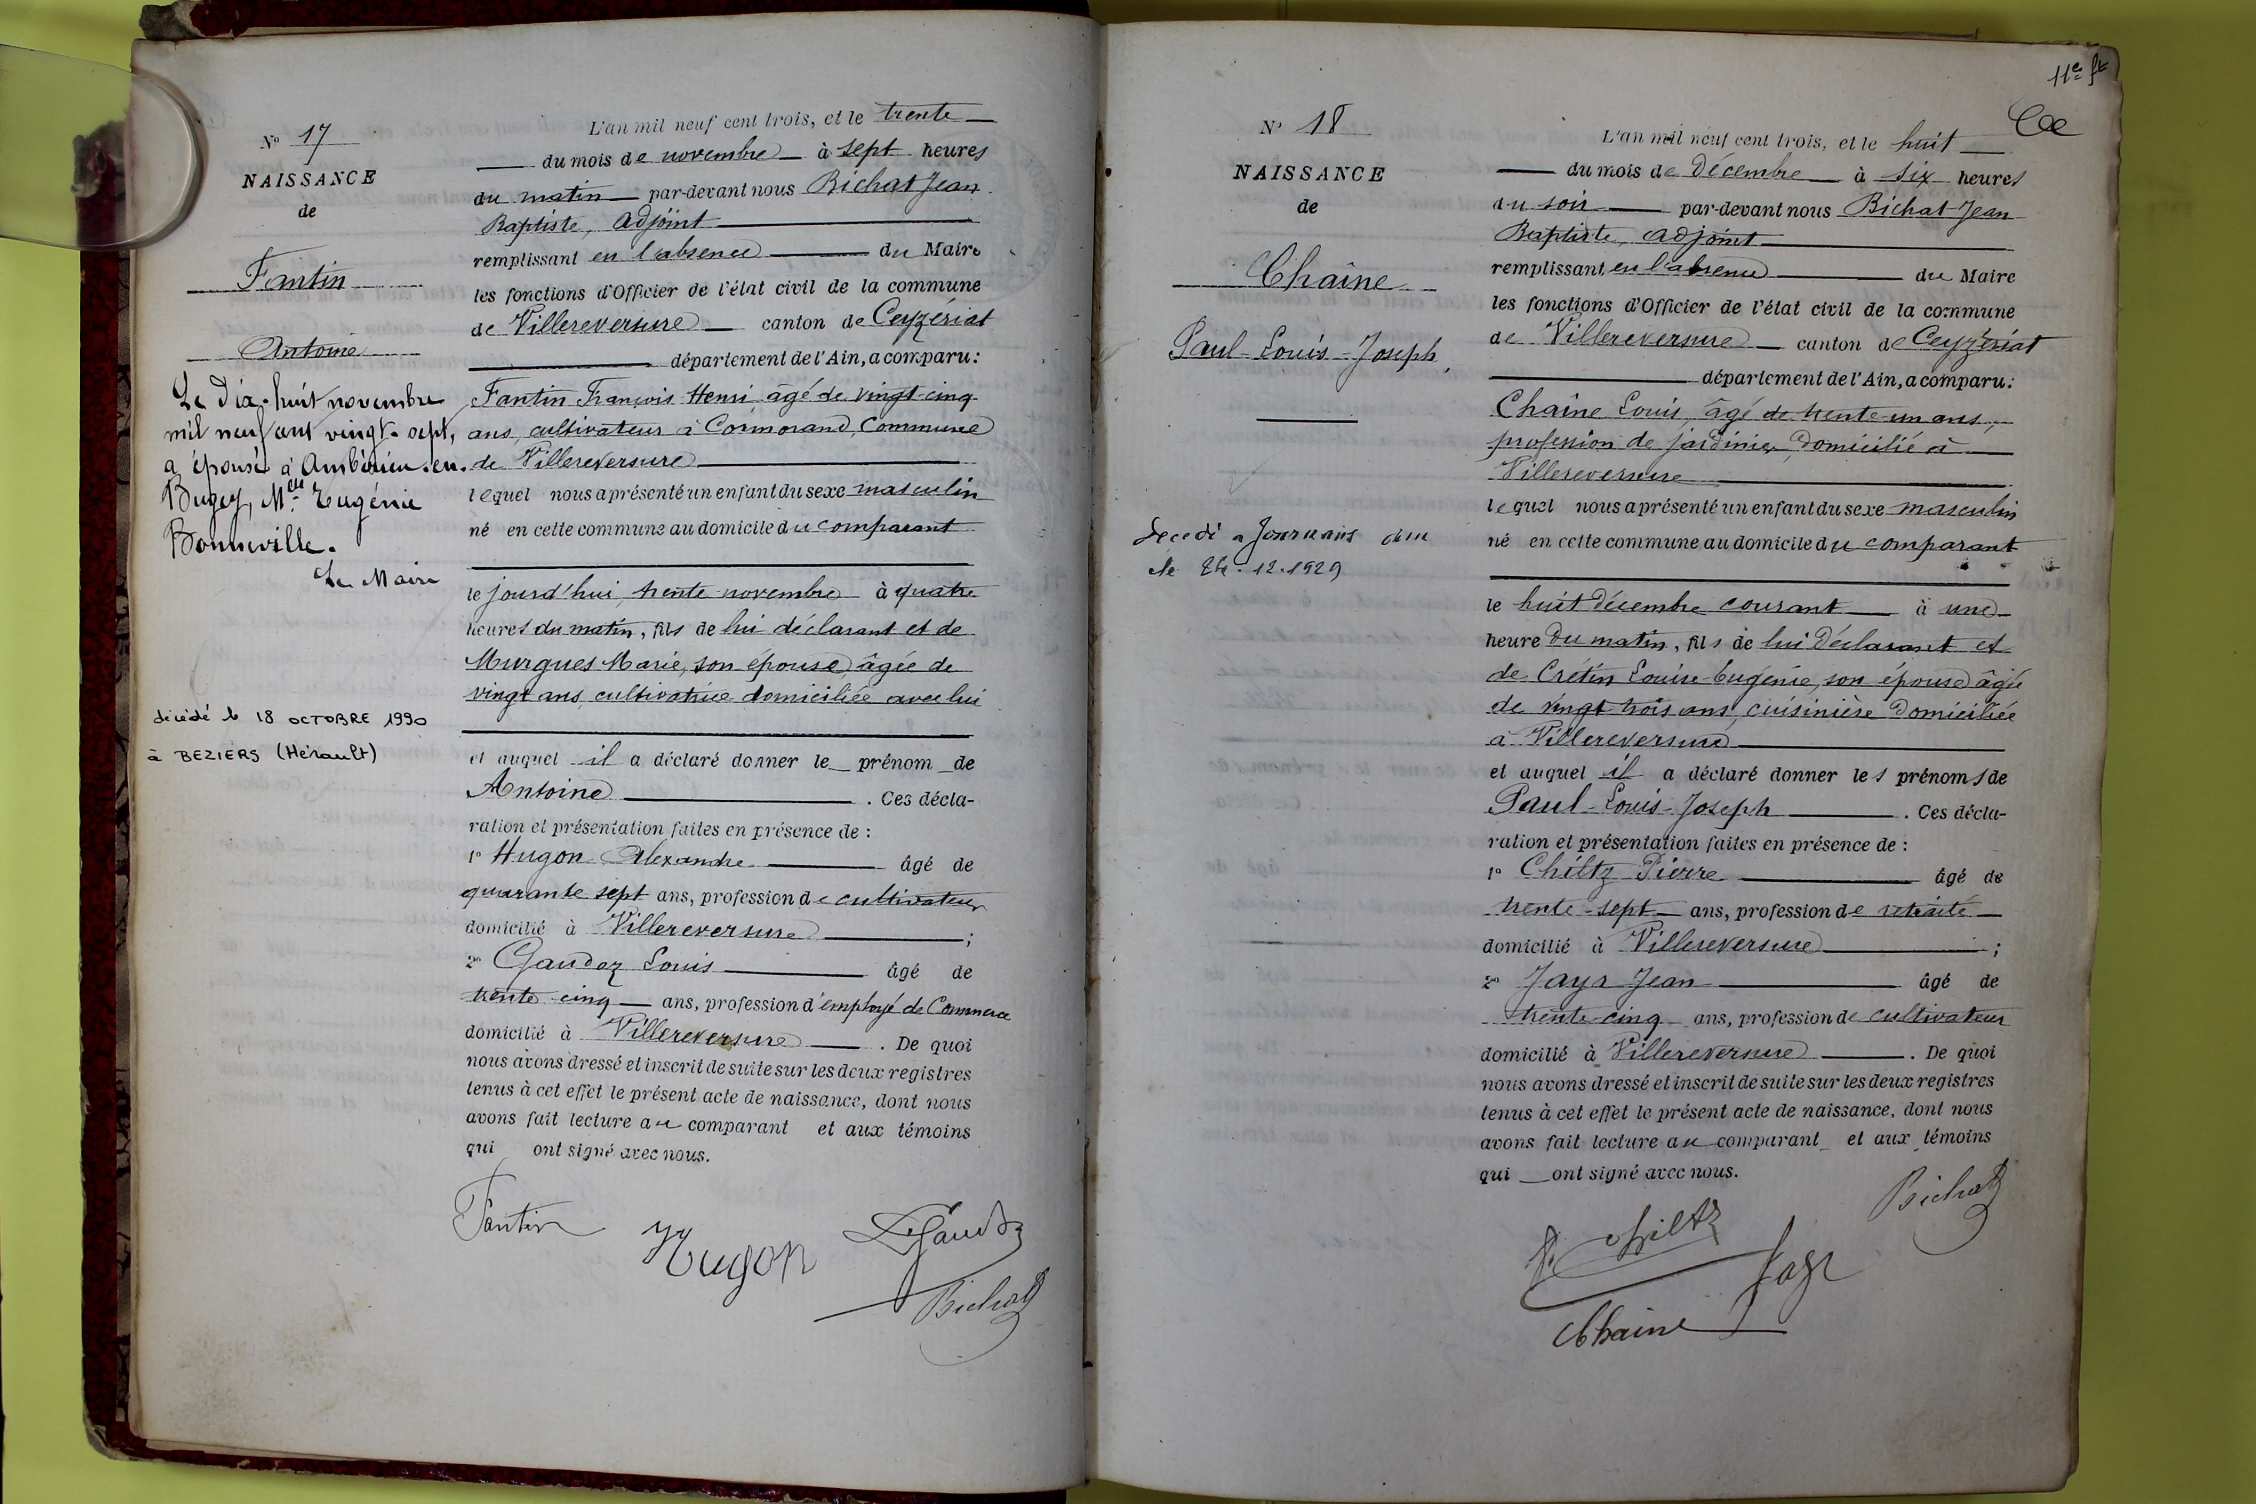 N° 17
NAISSANCE
de
Fantin
Antoine
Le Dix-huit novembre
mil neuf cent vingt-sept,
a épousé à Ambérieu-en-
Bugey, Mlle Eugénie
Bonneville.
Le Maire
décédé le 18 OCTOBRE 1990
à BEZIERS (Hérault)
L'an mil neuf cent trois, et le trente
du mois de novembre à sept heures
du matin par-devant nous Bichat Jean
Baptiste, adjoint
remplissant en l'absence du Maire
les fonctions d'Officier de l'état civil de la commune
de Villereversure canton de Ceyzériat
département de l'Ain, a comparu:
Fantin François Henri âgé de vingt-cinq
ans, cultivateur à Cormorand, Commune
de Villereversure
lequel nous a présenté un enfant du sexe masculin
né en cette commune au domicile du comparant
le jourd'hui, trente novembre à quatre
heures du matin, fils de lui déclarant et de
Murgues Marie, son épouse, âgée de
vingt ans, cultivatrice domiciliée avec lui
et auquel il a déclaré donner le prénom de
Antoine . Ces décla-
ration et présentation faites en présence de :
1° Hugon Alexandre âgé de
quarante sept ans, profession de cultivateur
domicilié à Villereversure ;
2° Gaudoz Louis âgé de
trente cinq ans, profession d'employé de Commerce
domicilié à Villereversure . De quoi
nous avons dressé et inscrit de suite sur les deux registres
tenus à cet effet le présent acte de naissance, dont nous
avons fait lecture au comparant et aux témoins
qui ont signé avec nous.
Fantin Hugon L. Gaudoz
Bichat
11e ft
N° 18
NAISSANCE
de
Chaîne
Paul-Louis-Joseph
Décédé à Journans
le 24.12.1929
L'an mil neuf cent trois, et le huit
du mois de Décembre à six heures
du soir par-devant nous Bichat Jean
Baptiste, adjoint
remplissant en l'absence du Maire
les fonctions d'Officier de l'état civil de la commune
de Villereversure canton de Ceyzériat
département de l'Ain, a comparu:
Chaîne Louis, âgé de trente-un ans,
profession de jardinier, domicilié à
Villereversure
lequel nous a présenté un enfant du sexe masculin
né en cette commune au domicile du comparant
le huit Décembre courant à une
heure du matin, fils de lui Déclarant et
de Crétin Louise Eugénie, son épouse âgée
de vingt trois ans, cuisinière Domiciliée
à Villereversure
et auquel il a déclaré donner les prénoms de
Paul-Louis-Joseph . Ces décla-
ration et présentation faites en présence de :
1° Chiltz Pierre âgé de
trente-sept ans, profession de retraité
domicilié à Villereversure ;
2° Jayr Jean âgé de
trente-cinq ans, profession de cultivateur
domicilié à Villereversure . De quoi
nous avons dressé et inscrit de suite sur les deux registres
tenus à cet effet le présent acte de naissance, dont nous
avons fait lecture au comparant et aux témoins
qui ont signé avec nous.
Bichat
P. Chiltz Jayr
Chaine